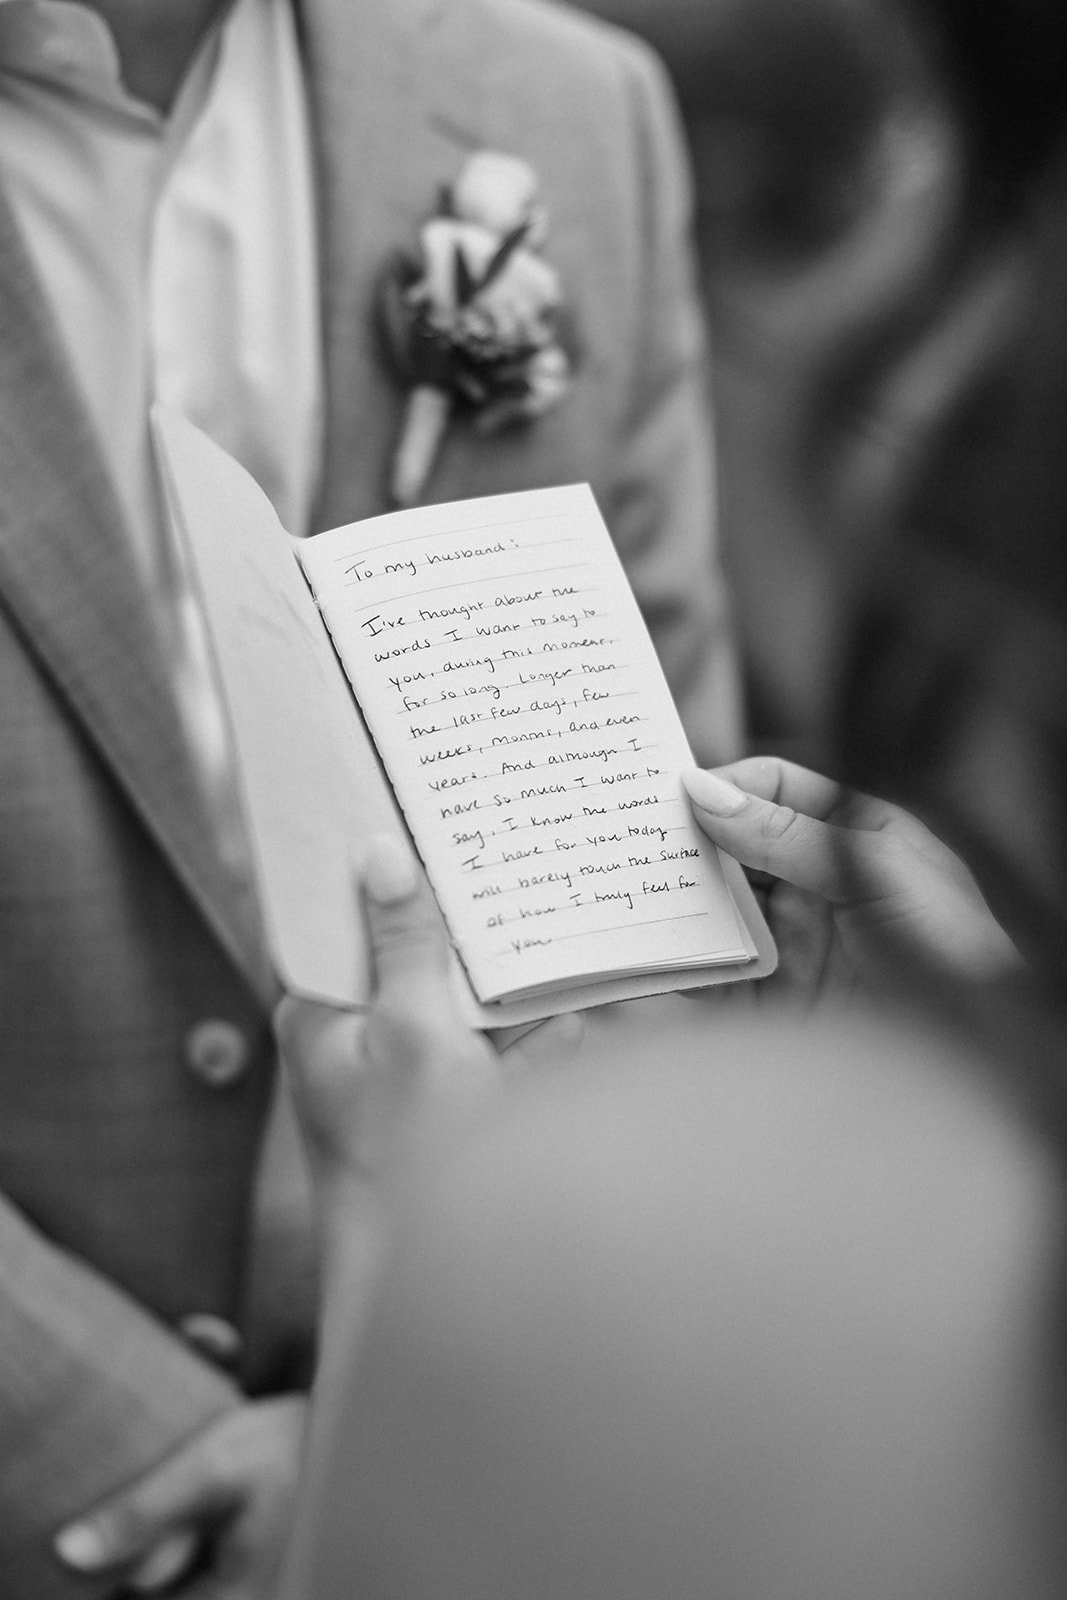 To my husband:
I've thought about the
words I want to say to
you, during this moment,
for so long. Longer than
the last few days, few
weeks, months, and even
years. And although I
have so much I want to
say, I know the words
I have for you today
will barely touch the surface
of how I truly feel for
you.